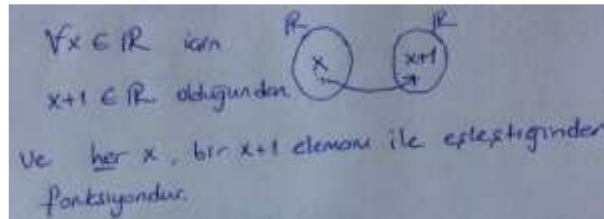 ∀x ∈ ℝ için
ℝ ℝ
x x+1
x+1 ∈ ℝ olduğundan
ve her x, bir x+1 elemanı ile eşleştiğinden
fonksiyondur.